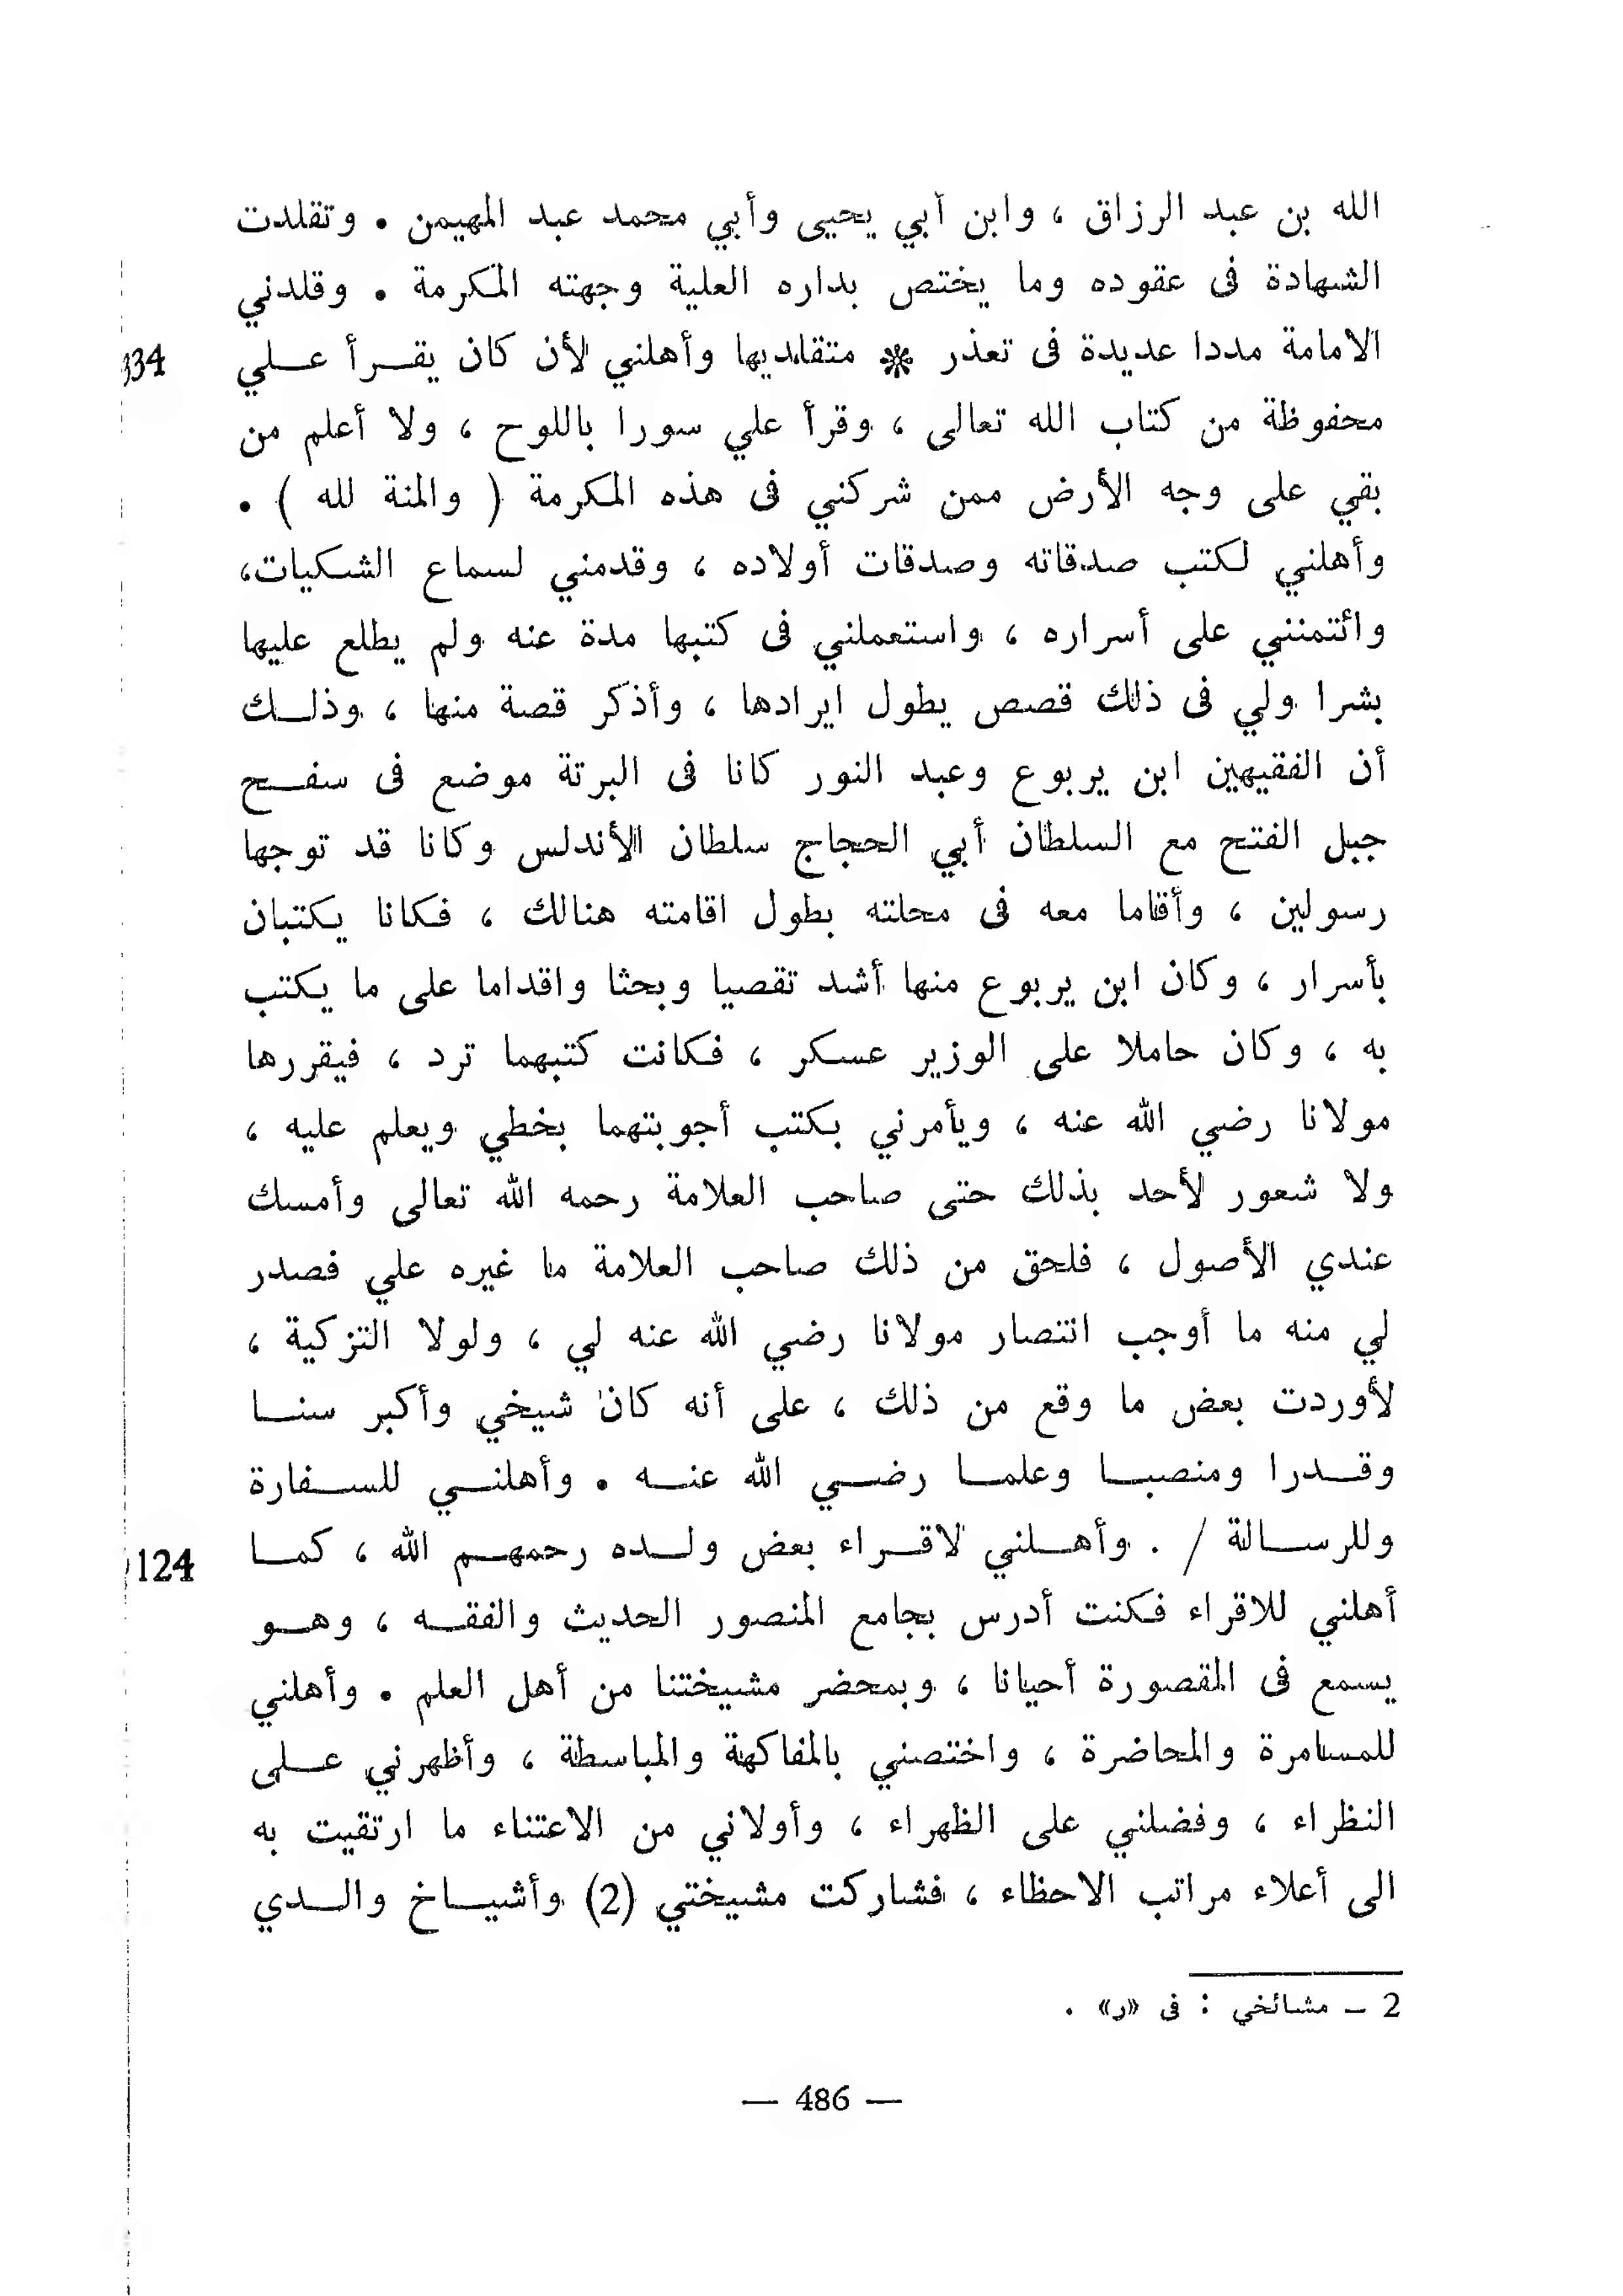 الله بن عبد الرزاق ، وابن أبي يحيى وأبي محمد عبد المهيمن . وتقلدت
الشهادة فى عقوده وما يختص بداره العلية وجهته المكرمة . وقلدني
الامامة مددا عديدة فى تعذر * متقلديها وأهلني لأن كان يقـرأ عـلي
334
محفوظة من كتاب الله تعالى ، وقرأ علي سورا باللوح ، ولا أعلم من
بقي على وجه الأرض ممن شركني فى هذه المكرمة ( والمنة لله ) .
وأهلني لكتب صدقاته وصدقات أولاده ، وقدمني لسماع الشكيات،
وائتمنني على أسراره ، واستعملني فى كتبها مدة عنه ولم يطلع عليها
بشرا ولي فى ذلك قصص يطول ايرادها ، وأذكر قصة منها ، وذلـك
أن الفقيهين ابن يربوع وعبد النور كانا فى البرتة موضع فى سفـح
جبل الفتح مع السلطان أبي الحجاج سلطان الأندلس وكانا قد توجها
رسولين ، وأقاما معه فى محلته بطول اقامته هنالك ، فكانا يكتبان
بأسرار ، وكان ابن يربوع منها أشد تقصيا وبحثا واقداما على ما يكتب
به ، وكان حاملا على الوزير عسكر ، فكانت كتبهما ترد ، فيقررها
مولانا رضي الله عنه ، ويأمرني بكتب أجوبتهما بخطي ويعلم عليه ،
ولا شعور لأحد بذلك حتى صاحب العلامة رحمه الله تعالى وأمسك
عندي الأصول ، فلحق من ذلك صاحب العلامة ما غيره علي فصدر
لي منه ما أوجب انتصار مولانا رضي الله عنه لي ، ولولا التزكية ،
لأوردت بعض ما وقع من ذلك ، على أنه كان شيخي وأكبر سنـا
وقـدرا ومنصبـا وعلمـا رضـي الله عنـه . وأهلنـي للسـفارة
وللرسـالة / . وأهـلني لاقـراء بعض ولـده رحمهـم الله ، كمـا
124
أهلني للاقراء فكنت أدرس بجامع المنصور الحديث والفقـه ، وهـو
يسمع فى المقصورة أحيانا ، وبمحضر مشيختنا من أهل العلم . وأهلني
للمسامرة والمحاضرة ، واختصني بالمفاكهة والمباسطة ، وأظهرني عـلى
النظراء ، وفضلني على الظهراء ، وأولاني من الاعتناء ما ارتقيت به
الى أعلاء مراتب الاحظاء ، فشاركت مشيختي (2) وأشيـاخ والـدي
2 ــ مشائخي : فى «ر» .
— 486 —